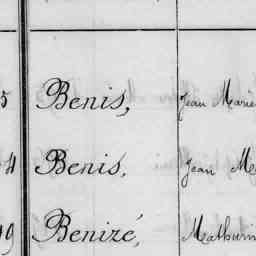 5 Benis, Jean Marie
4 Benis, Jean M
19 Benizé, Mathurin